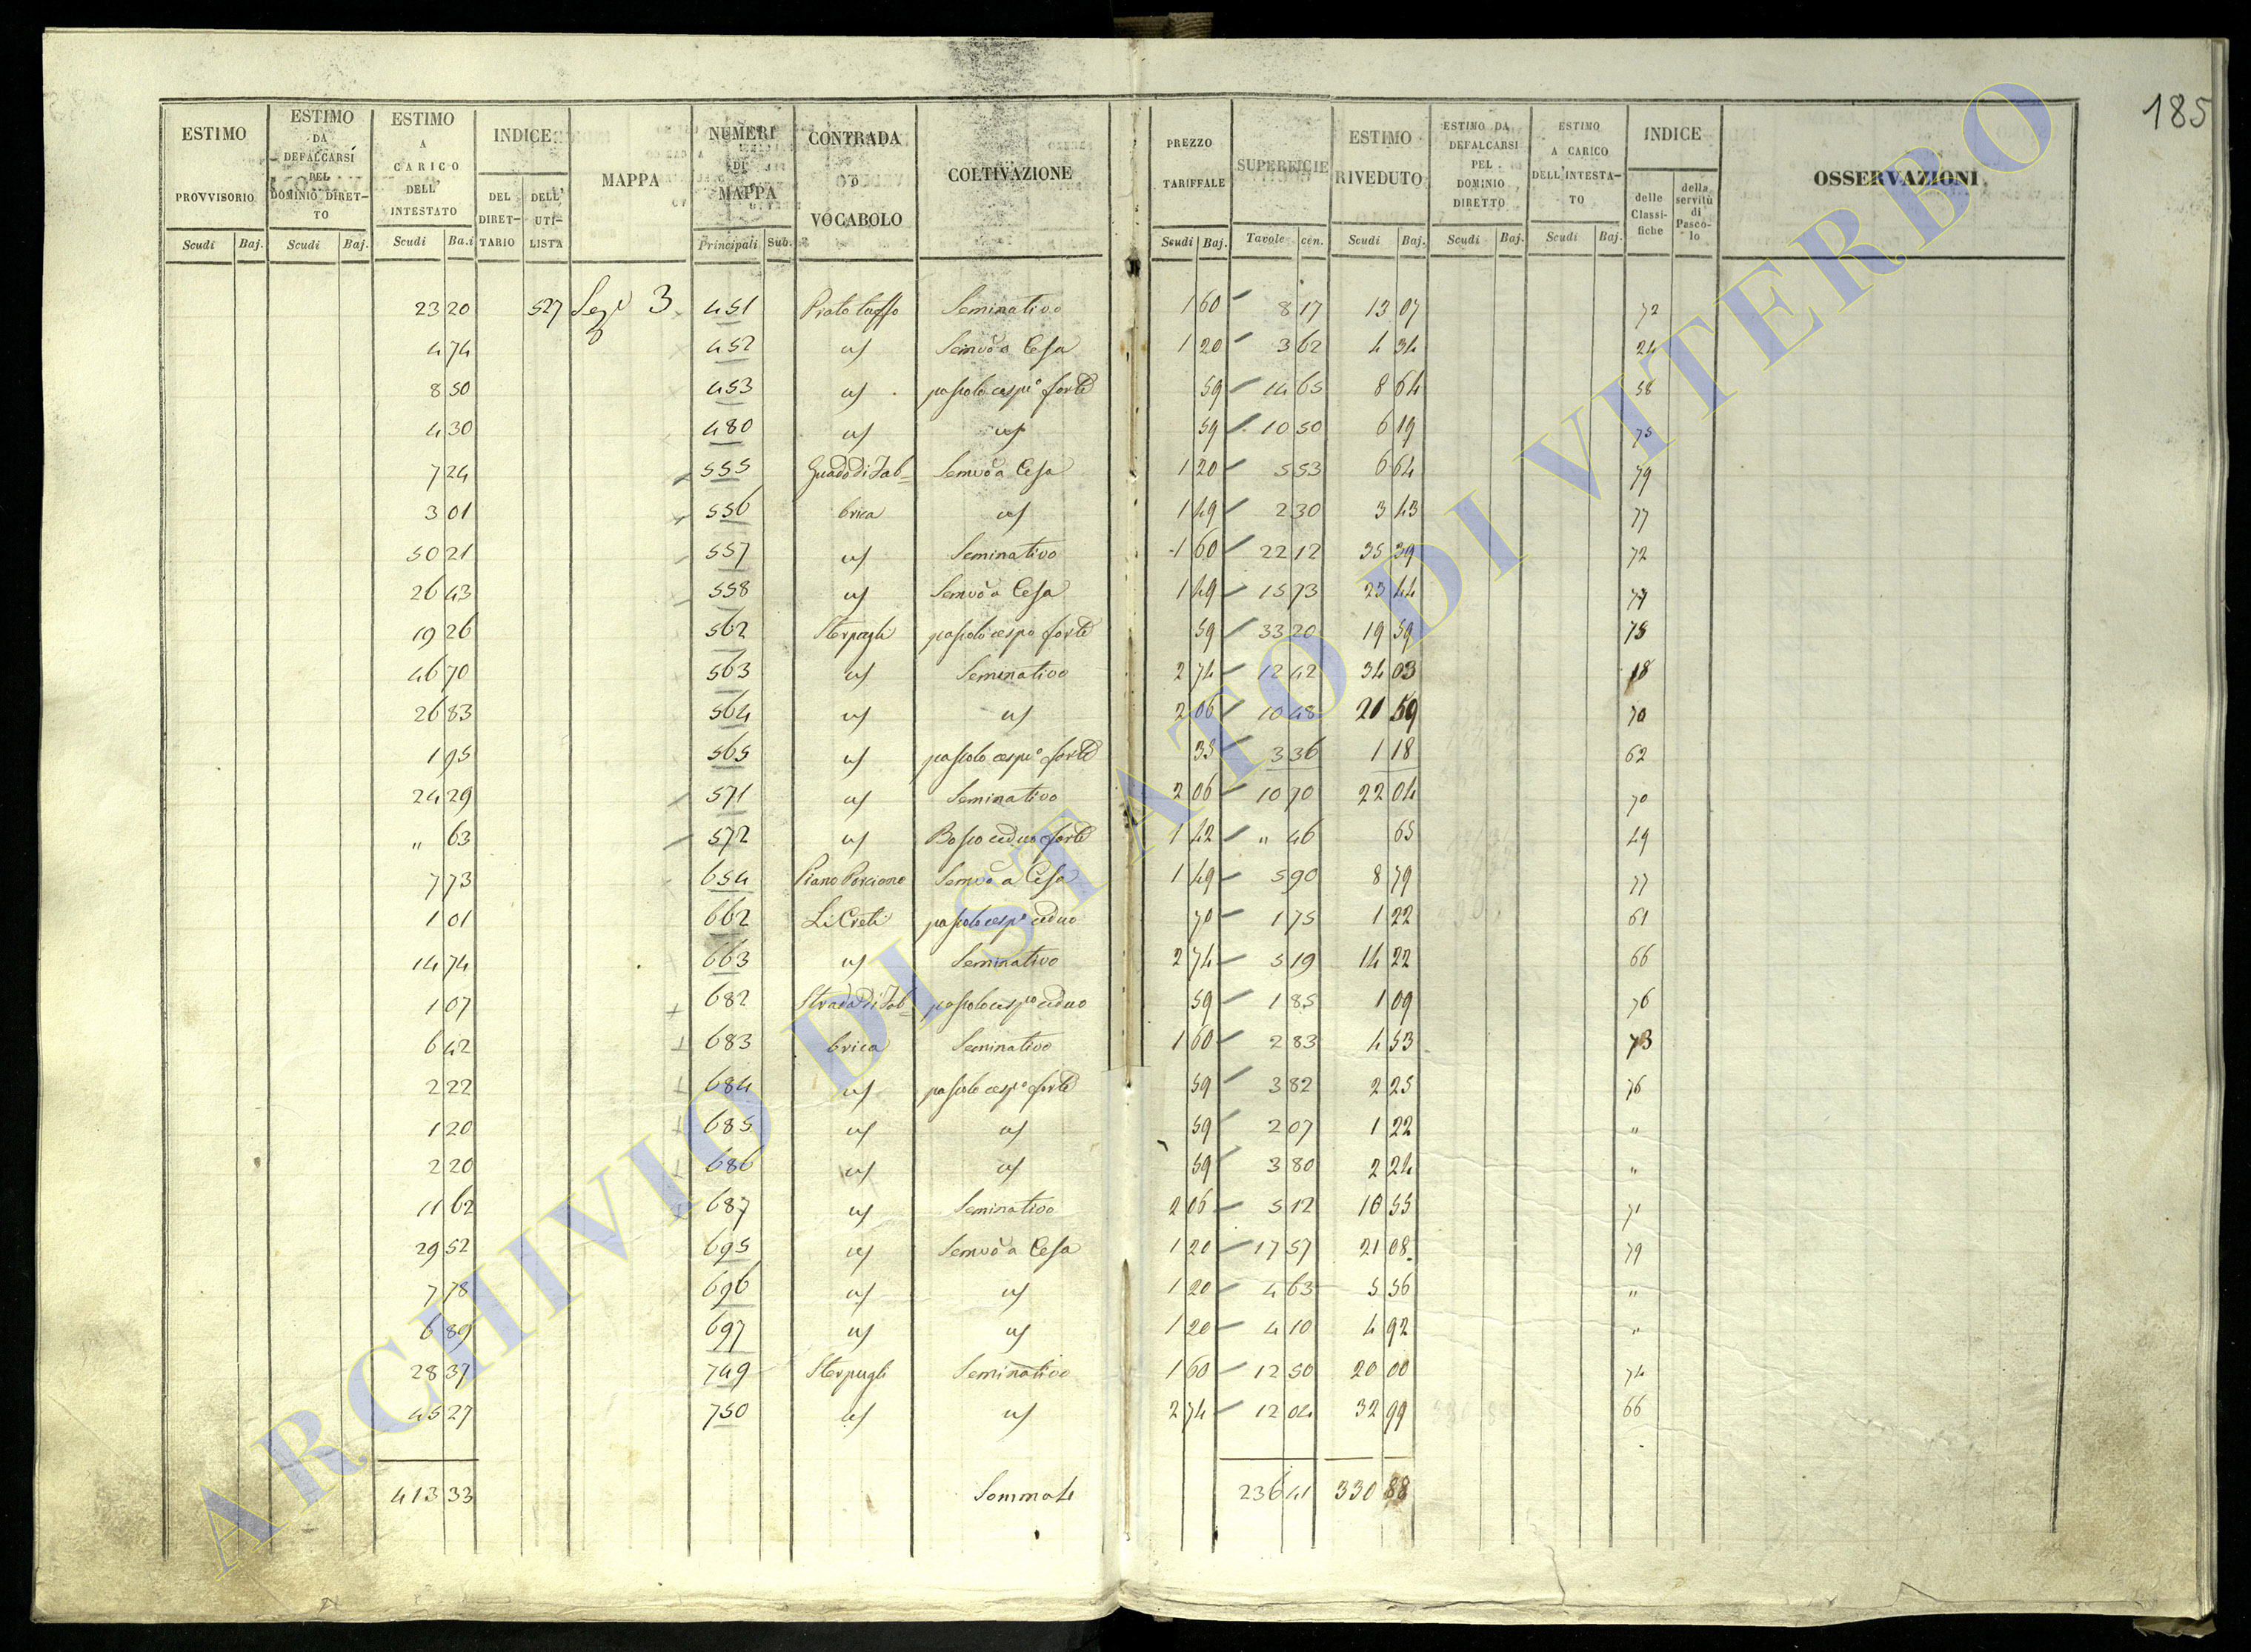 185
ESTIMO PROVVISORIO
ESTIMO DA DEFALCARSI PEL DOMINIO DIRETTO
ESTIMO A CARICO DELL' INTESTATO
INDICE
DEL DIRETTARIO
DELL' UTILISTA
MAPPA
NUMERI DI MAPPA
CONTRADA O VOCABOLO
COLTIVAZIONE
PREZZO TARIFFALE
SUPERFICIE
ESTIMO RIVEDUTO
ESTIMO DA DEFALCARSI PEL DOMINIO DIRETTO
ESTIMO A CARICO DELL'INTESTATO
INDICE
delle Classifiche
della servitù di Pascolo
OSSERVAZIONI
Scudi Baj. Scudi Baj. Scudi Ba.i Principali Sub. Scudi Baj. Tavole cen. Scudi Baj. Scudi Baj. Scudi Baj.
23 20 527 3 451 Prato Seminativo 1 60 8 17 13 07 72
4 74 452 uſ Semvo a Cesa 1 20 3 62 4 34 24
8 50 453 uſ pascolo cespo forte 59 14 65 8 64 58
4 30 480 uſ uſ 59 10 50 6 19 75
7 24 555 Guado di Fab= Semvo a Cesa 1 20 5 53 6 64 79
3 01 556 brica uſ 1 49 2 30 3 43 77
50 21 557 uſ Seminativo 1 60 22 12 35 39 72
26 43 558 uſ Semvo a Cesa 1 49 15 73 23 44 77
19 26 562 Sterpagli pascolo cespo forte 59 33 20 19 59 75
46 70 563 uſ Seminativo 2 74 12 42 34 03 18
26 83 564 uſ uſ 2 06 10 48 21 59 70
1 95 565 uſ pascolo cespo forte 35 3 36 1 18 62
24 29 571 uſ Seminativo 2 06 10 70 22 04 70
" 63 572 uſ Bosco ceduo forte 1 42 " 46 65 49
7 73 654 Piano Porciano Semvo a Cesa 1 49 5 90 8 79 77
1 01 662 Li Creti pascolo cespo ceduo 70 1 75 1 22 61
14 74 663 uſ Seminativo 2 74 5 19 14 22 66
1 07 682 Strada di Fab= pascolo cespo ceduo 59 1 85 1 09 76
6 42 683 brica Seminativo 1 60 2 83 4 53 73
2 22 684 uſ pascolo cespo forte 59 3 82 2 25 76
1 20 685 uſ uſ 59 2 07 1 22 "
2 20 686 uſ uſ 59 3 80 2 24 "
11 62 687 uſ Seminativo 2 06 5 12 10 55 71
29 52 695 uſ Semvo a Cesa 1 20 17 57 21 08 79
7 78 696 uſ uſ 1 20 4 63 5 56 "
6 89 697 uſ uſ 1 20 4 10 4 92 "
28 37 749 Sterpagli Seminativo 1 60 12 50 20 00 74
45 27 750 uſ uſ 2 74 12 04 32 99 66
413 33 Sommate 236 41 330 88
ARCHIVIO DI STATO DI VITERBO